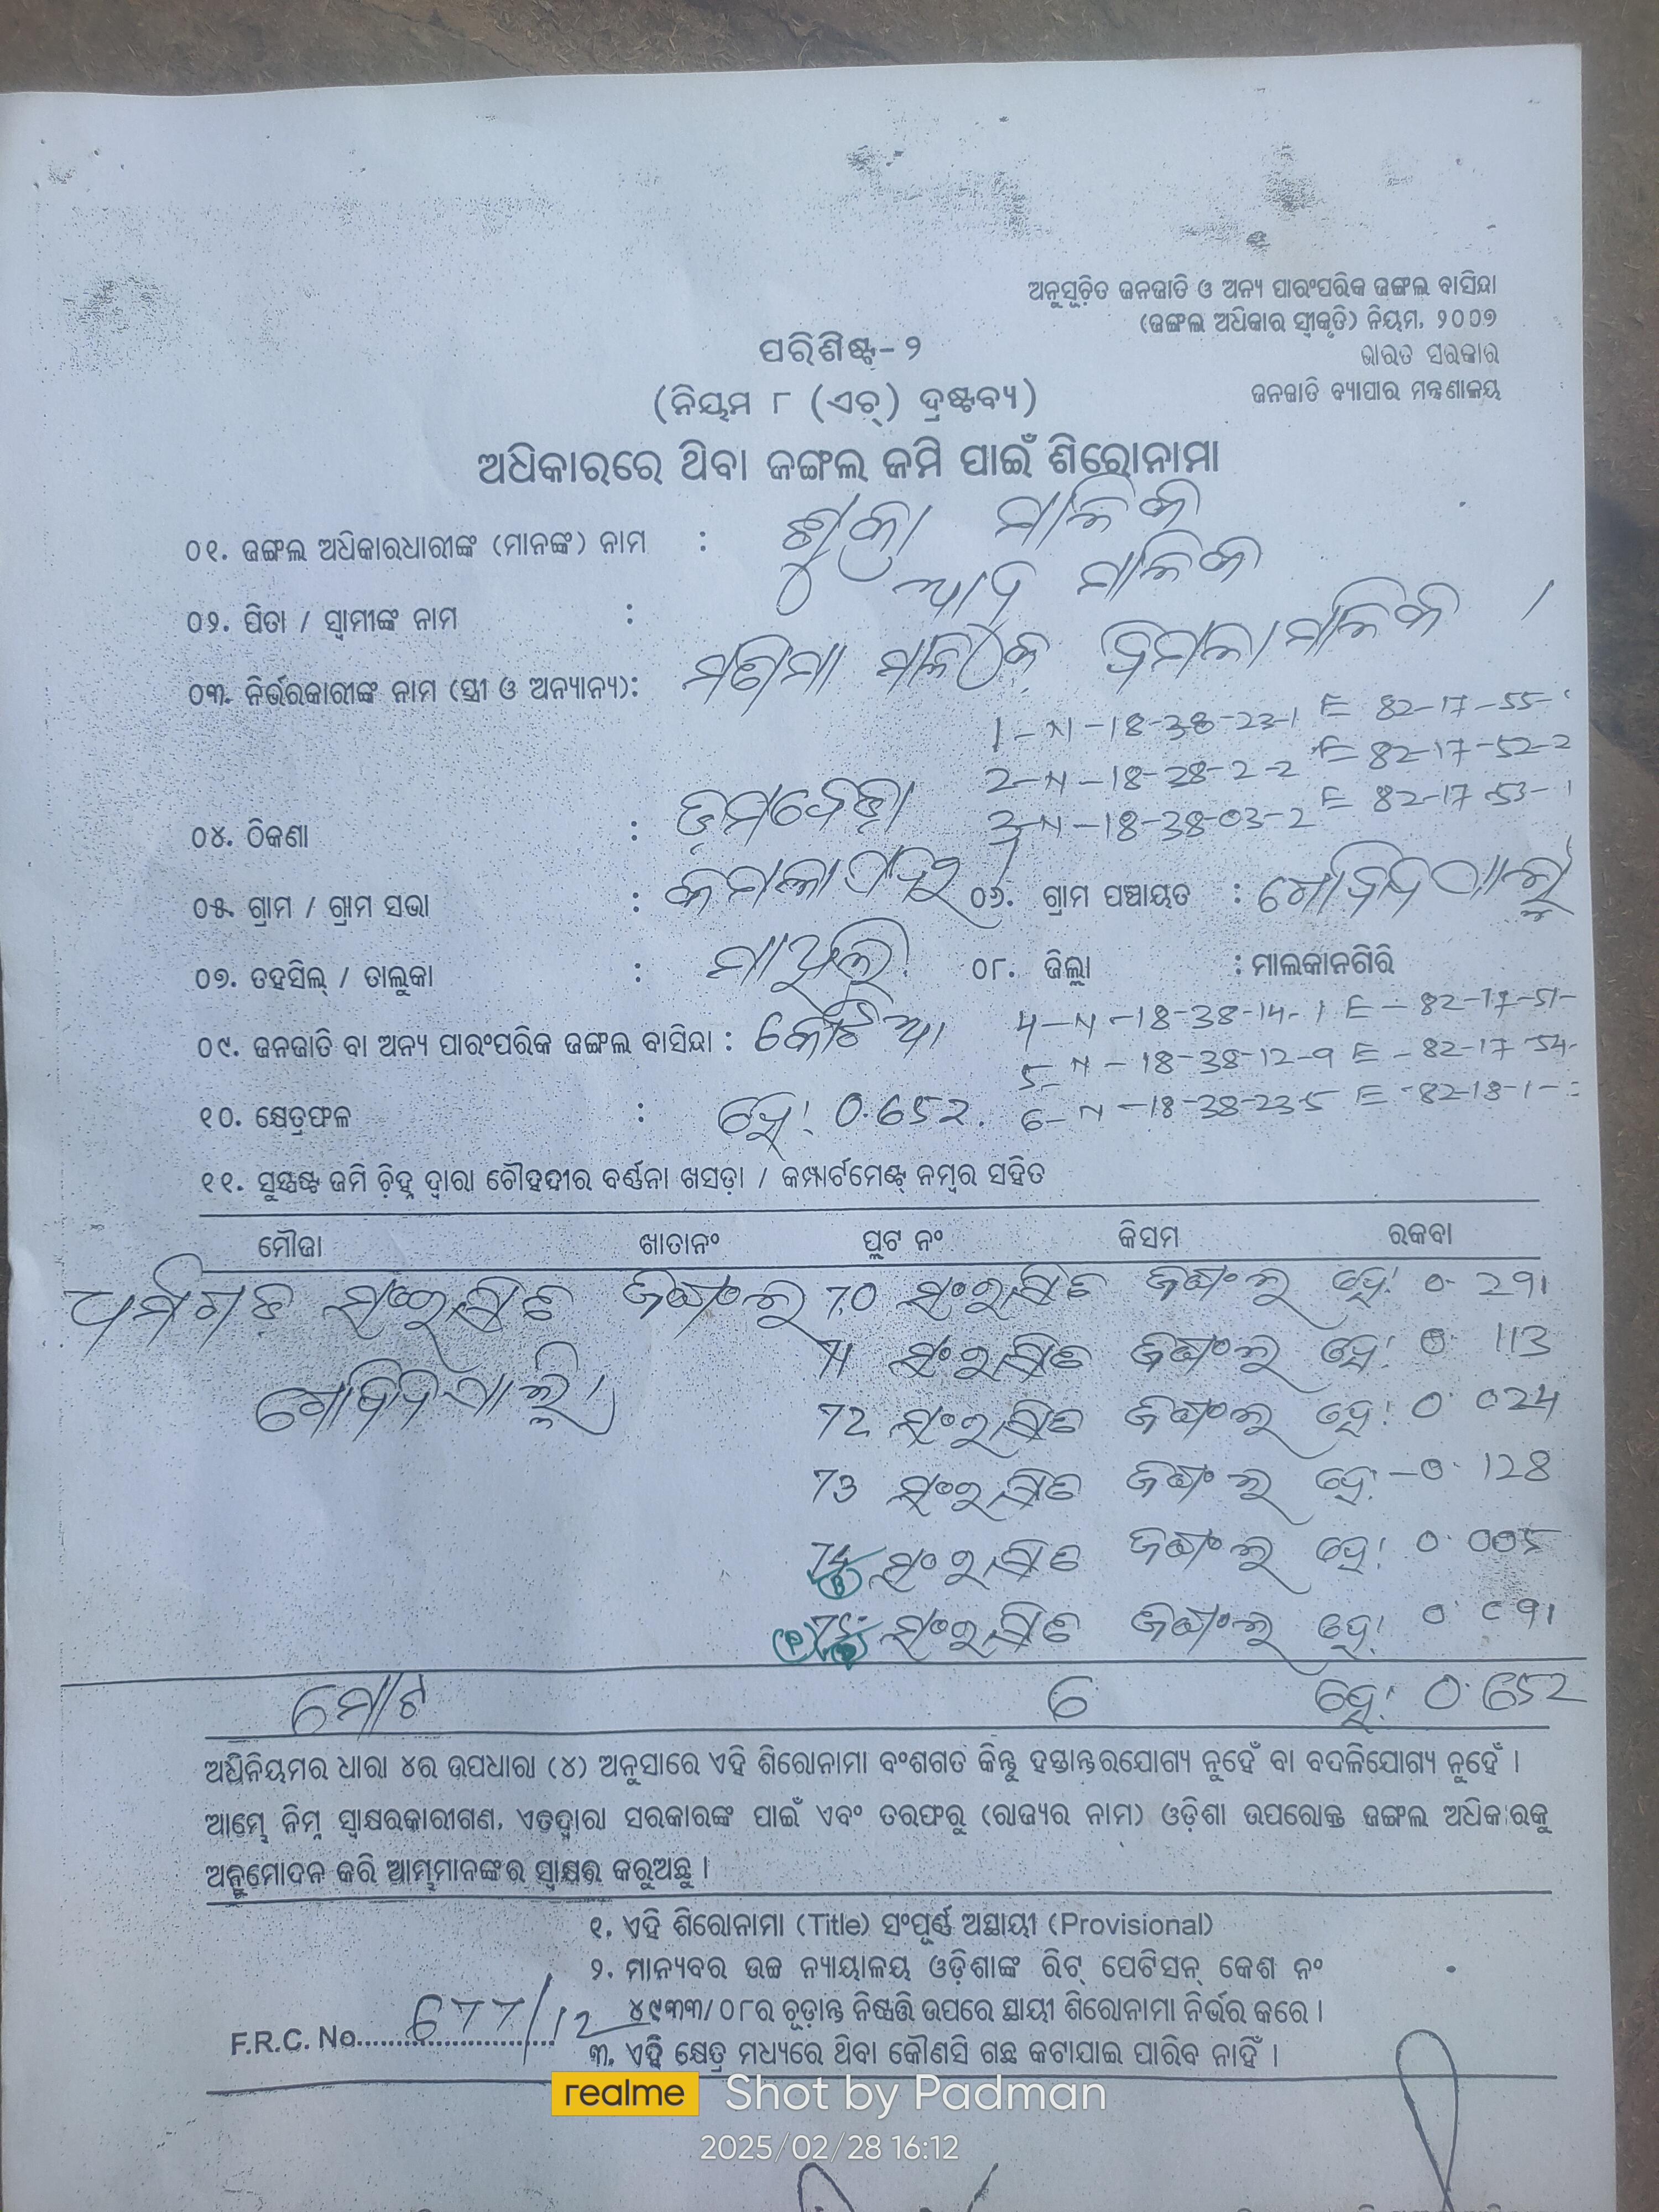 ଅନୁସୂଚିତ ଜନଜାତି ଓ ଅନ୍ୟ ପାରଂପରିକ ଜଙ୍ଗଲ ବାସିନ୍ଦା
(ଜଙ୍ଗଲ ଅଧିକାର ସ୍ୱୀକୃତି) ନିୟମ, ୨୦୦୭
ଭାରତ ସରକାର
ଜନଜାତି ବ୍ୟାପାର ମନ୍ତ୍ରଣାଳୟ
ପରିଶିଷ୍ଟ-୨
(ନିୟମ ୮ (ଏଚ୍) ଦ୍ରଷ୍ଟବ୍ୟ)
ଅଧିକାରରେ ଥିବା ଜଙ୍ଗଲ ଜମି ପାଇଁ ଶିରୋନାମା
୦୧. ଜଙ୍ଗଲ ଅଧିକାରଧାରୀଙ୍କ (ମାନଙ୍କ) ନାମ :
୦୨. ପିତା / ସ୍ୱାମୀଙ୍କ ନାମ :
୦୩. ନିର୍ଭରକାରୀଙ୍କ ନାମ (ସ୍ତ୍ରୀ ଓ ଅନ୍ୟାନ୍ୟ):
1-N-18-38-23-1 E 82-17-55-
2-N-18-38-2-2 E 82-17-52-2
3-N-18-38-03-2 E 82-17-53-1
୦୪. ଠିକଣା :
୦୫. ଗ୍ରାମ / ଗ୍ରାମ ସଭା : ୦୬. ଗ୍ରାମ ପଞ୍ଚାୟତ :
୦୭. ତହସିଲ୍ / ତାଲୁକା : ୦୮. ଜିଲ୍ଲା : ମାଲକାନଗିରି
୦୯. ଜନଜାତି ବା ଅନ୍ୟ ପାରଂପରିକ ଜଙ୍ଗଲ ବାସିନ୍ଦା :
4-N-18-38-14-1 E-82-17-51-
5-N-18-38-12-9 E-82-17-54-
୧୦. କ୍ଷେତ୍ରଫଳ : ହେ! 0.652. 6-N-18-38-23-5 E-82-18-1-
୧୧. ସୁସ୍ପଷ୍ଟ ଜମି ଚିହ୍ନ ଦ୍ୱାରା ଚୌହଦ୍ଦୀର ବର୍ଣ୍ଣନା ଖସଡ଼ା / କମ୍ପାର୍ଟମେଣ୍ଟ ନମ୍ବର ସହିତ
ମୌଜା ଖାତାନଂ ପ୍ଲଟ ନଂ କିସମ ରକବା
70 ସଂରକ୍ଷିତ ଜଙ୍ଗଲ ହେ! 0.291
71 ସଂରକ୍ଷିତ ଜଙ୍ଗଲ ହେ! 0.113
72 ସଂରକ୍ଷିତ ଜଙ୍ଗଲ ହେ! 0.024
73 ସଂରକ୍ଷିତ ଜଙ୍ଗଲ ହେ!-0.128
ସଂରକ୍ଷିତ ଜଙ୍ଗଲ ହେ! 0.005
ସଂରକ୍ଷିତ ଜଙ୍ଗଲ ହେ! 0.091
ମୋଟ 6 ହେ! 0.652
ଅଧିନିୟମର ଧାରା ୪ର ଉପଧାରା (୪) ଅନୁସାରେ ଏହି ଶିରୋନାମା ବଂଶଗତ କିନ୍ତୁ ହସ୍ତାନ୍ତରଯୋଗ୍ୟ ନୁହେଁ ବା ବଦଳିଯୋଗ୍ୟ ନୁହେଁ ।
ଆମ୍ଭେ ନିମ୍ନ ସ୍ୱାକ୍ଷରକାରୀଗଣ, ଏତଦ୍ୱାରା ସରକାରଙ୍କ ପାଇଁ ଏବଂ ତରଫରୁ (ରାଜ୍ୟର ନାମ) ଓଡ଼ିଶା ଉପରୋକ୍ତ ଜଙ୍ଗଲ ଅଧିକାରକୁ
ଅନୁମୋଦନ କରି ଆମ୍ଭମାନଙ୍କର ସ୍ୱାକ୍ଷର କରୁଅଛୁ ।
୧. ଏହି ଶିରୋନାମା (Title) ସଂପୂର୍ଣ୍ଣ ଅସ୍ଥାୟୀ (Provisional)
୨. ମାନ୍ୟବର ଉଚ୍ଚ ନ୍ୟାୟାଳୟ ଓଡ଼ିଶାଙ୍କ ରିଟ୍ ପେଟିସନ୍ କେଶ ନଂ
୪୯୩୩/୦୮ର ଚୂଡ଼ାନ୍ତ ନିଷ୍ପତ୍ତି ଉପରେ ସ୍ଥାୟୀ ଶିରୋନାମା ନିର୍ଭର କରେ ।
F.R.C. No 677/12
୩. ଏହି କ୍ଷେତ୍ର ମଧ୍ୟରେ ଥିବା କୌଣସି ଗଛ କଟାଯାଇ ପାରିବ ନାହିଁ ।
realme Shot by Padman
2025/02/28 16:12